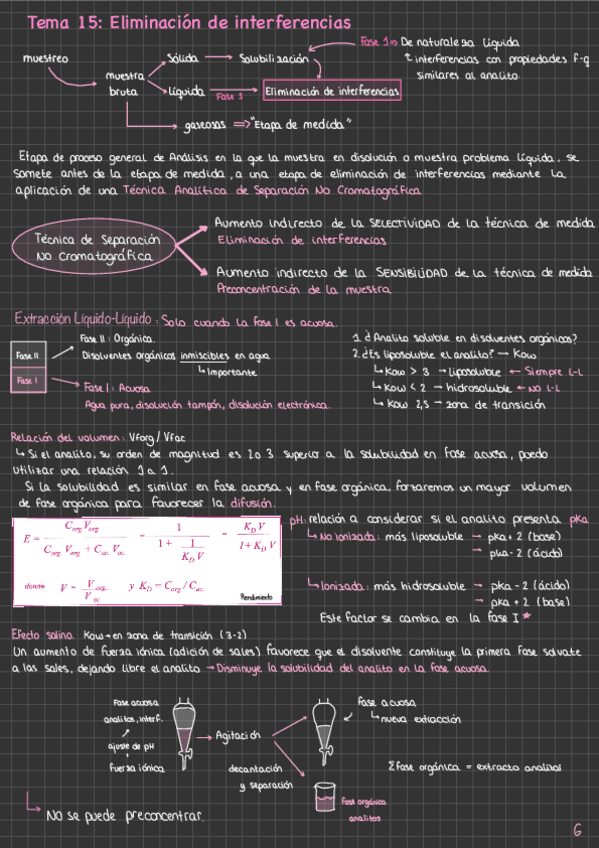 Tema 15: Eliminación de interferencias
muestreo
muestra bruta
Sólida → Solubilización
Fase 1 => De naturaleza líquida
interferencias con propiedades F-q
similares al analito.
líquida
Fase 1
Eliminación de interferencias
gaseosas => "Etapa de medida"
Etapa de proceso general de Análisis en la que la muestra en disolución o muestra problema líquida, se
somete antes de la etapa de medida, a una etapa de eliminación de interferencias mediante la
aplicación de una Técnica Analítica de Separación No Cromatográfica
Técnica de Separación
No cromatográfica
Aumento indirecto de la SELECTIVIDAD de la técnica de medida
Eliminación de interferencias
Aumento indirecto de la SENSIBILIDAD de la técnica de medida
Preconcentración de la muestra
Extracción Líquido-Líquido: Solo cuando la fase I es acuosa.
Fase II
Fase I
Fase II: Orgánica.
Disolventes orgánicos inmiscibles en agua
↳ Importante
Fase I: Acuosa
Agua pura, disolución tampón, disolución electrónica.
1. ¿Analito soluble en disolventes orgánicos?
2. ¿Es liposoluble el analito? → Kow
↳ Kow > 3 → liposoluble ← Siempre L-L
↳ Kow < 2 → hidrosoluble ← NO L-L
↳ Kow 2,5 → zona de transición
Relación del volumen: Vforg / Vfac
↳ Si el analito, su orden de magnitud es 2o 3 superior a la solubilidad en fase acuosa, puedo
utilizar una relación 1 a 1.
Si la solubilidad es similar en fase acuosa y en fase orgánica, forzaremos un mayor volumen
de fase orgánica para favorecer la difusión.
E = C_org V_org / (C_org V_org + C_ac. V_ac.) = 1 / (1 + 1 / (K_D V)) = K_D V / (1 + K_D V)
donde V = V_org. / V_ac. y K_D = C_org / C_ac.
Rendimiento
pH: relación a considerar si el analito presenta pka.
↳ No ionizada: más liposoluble → pka + 2 (base)
→ pka - 2 (ácido)
↳ Ionizada: más hidrosoluble → pka - 2 (ácido)
→ pka + 2 (base)
Este factor se cambia en la fase I *
Efecto salino: Kow → en zona de transición (3-2)
Un aumento de fuerza iónica (adición de sales) favorece que el disolvente constituye la primera fase solvate
a las sales, dejando libre el analito → Disminuye la solubilidad del analito en la fase acuosa.
Fase acuosa
analitos, interf.
ajuste de pH
fuerza iónica
Agitación
decantación
y separación
Fase acuosa
↳ nueva extracción
fase orgánica
analitos
Σ fase orgánica = extracto analizar
↳ No se puede preconcentrar.
6